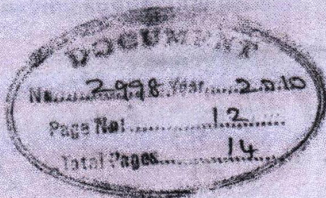 DOCUMENT
No. 2998 Year 2010
Page No: 12
Total Pages 14